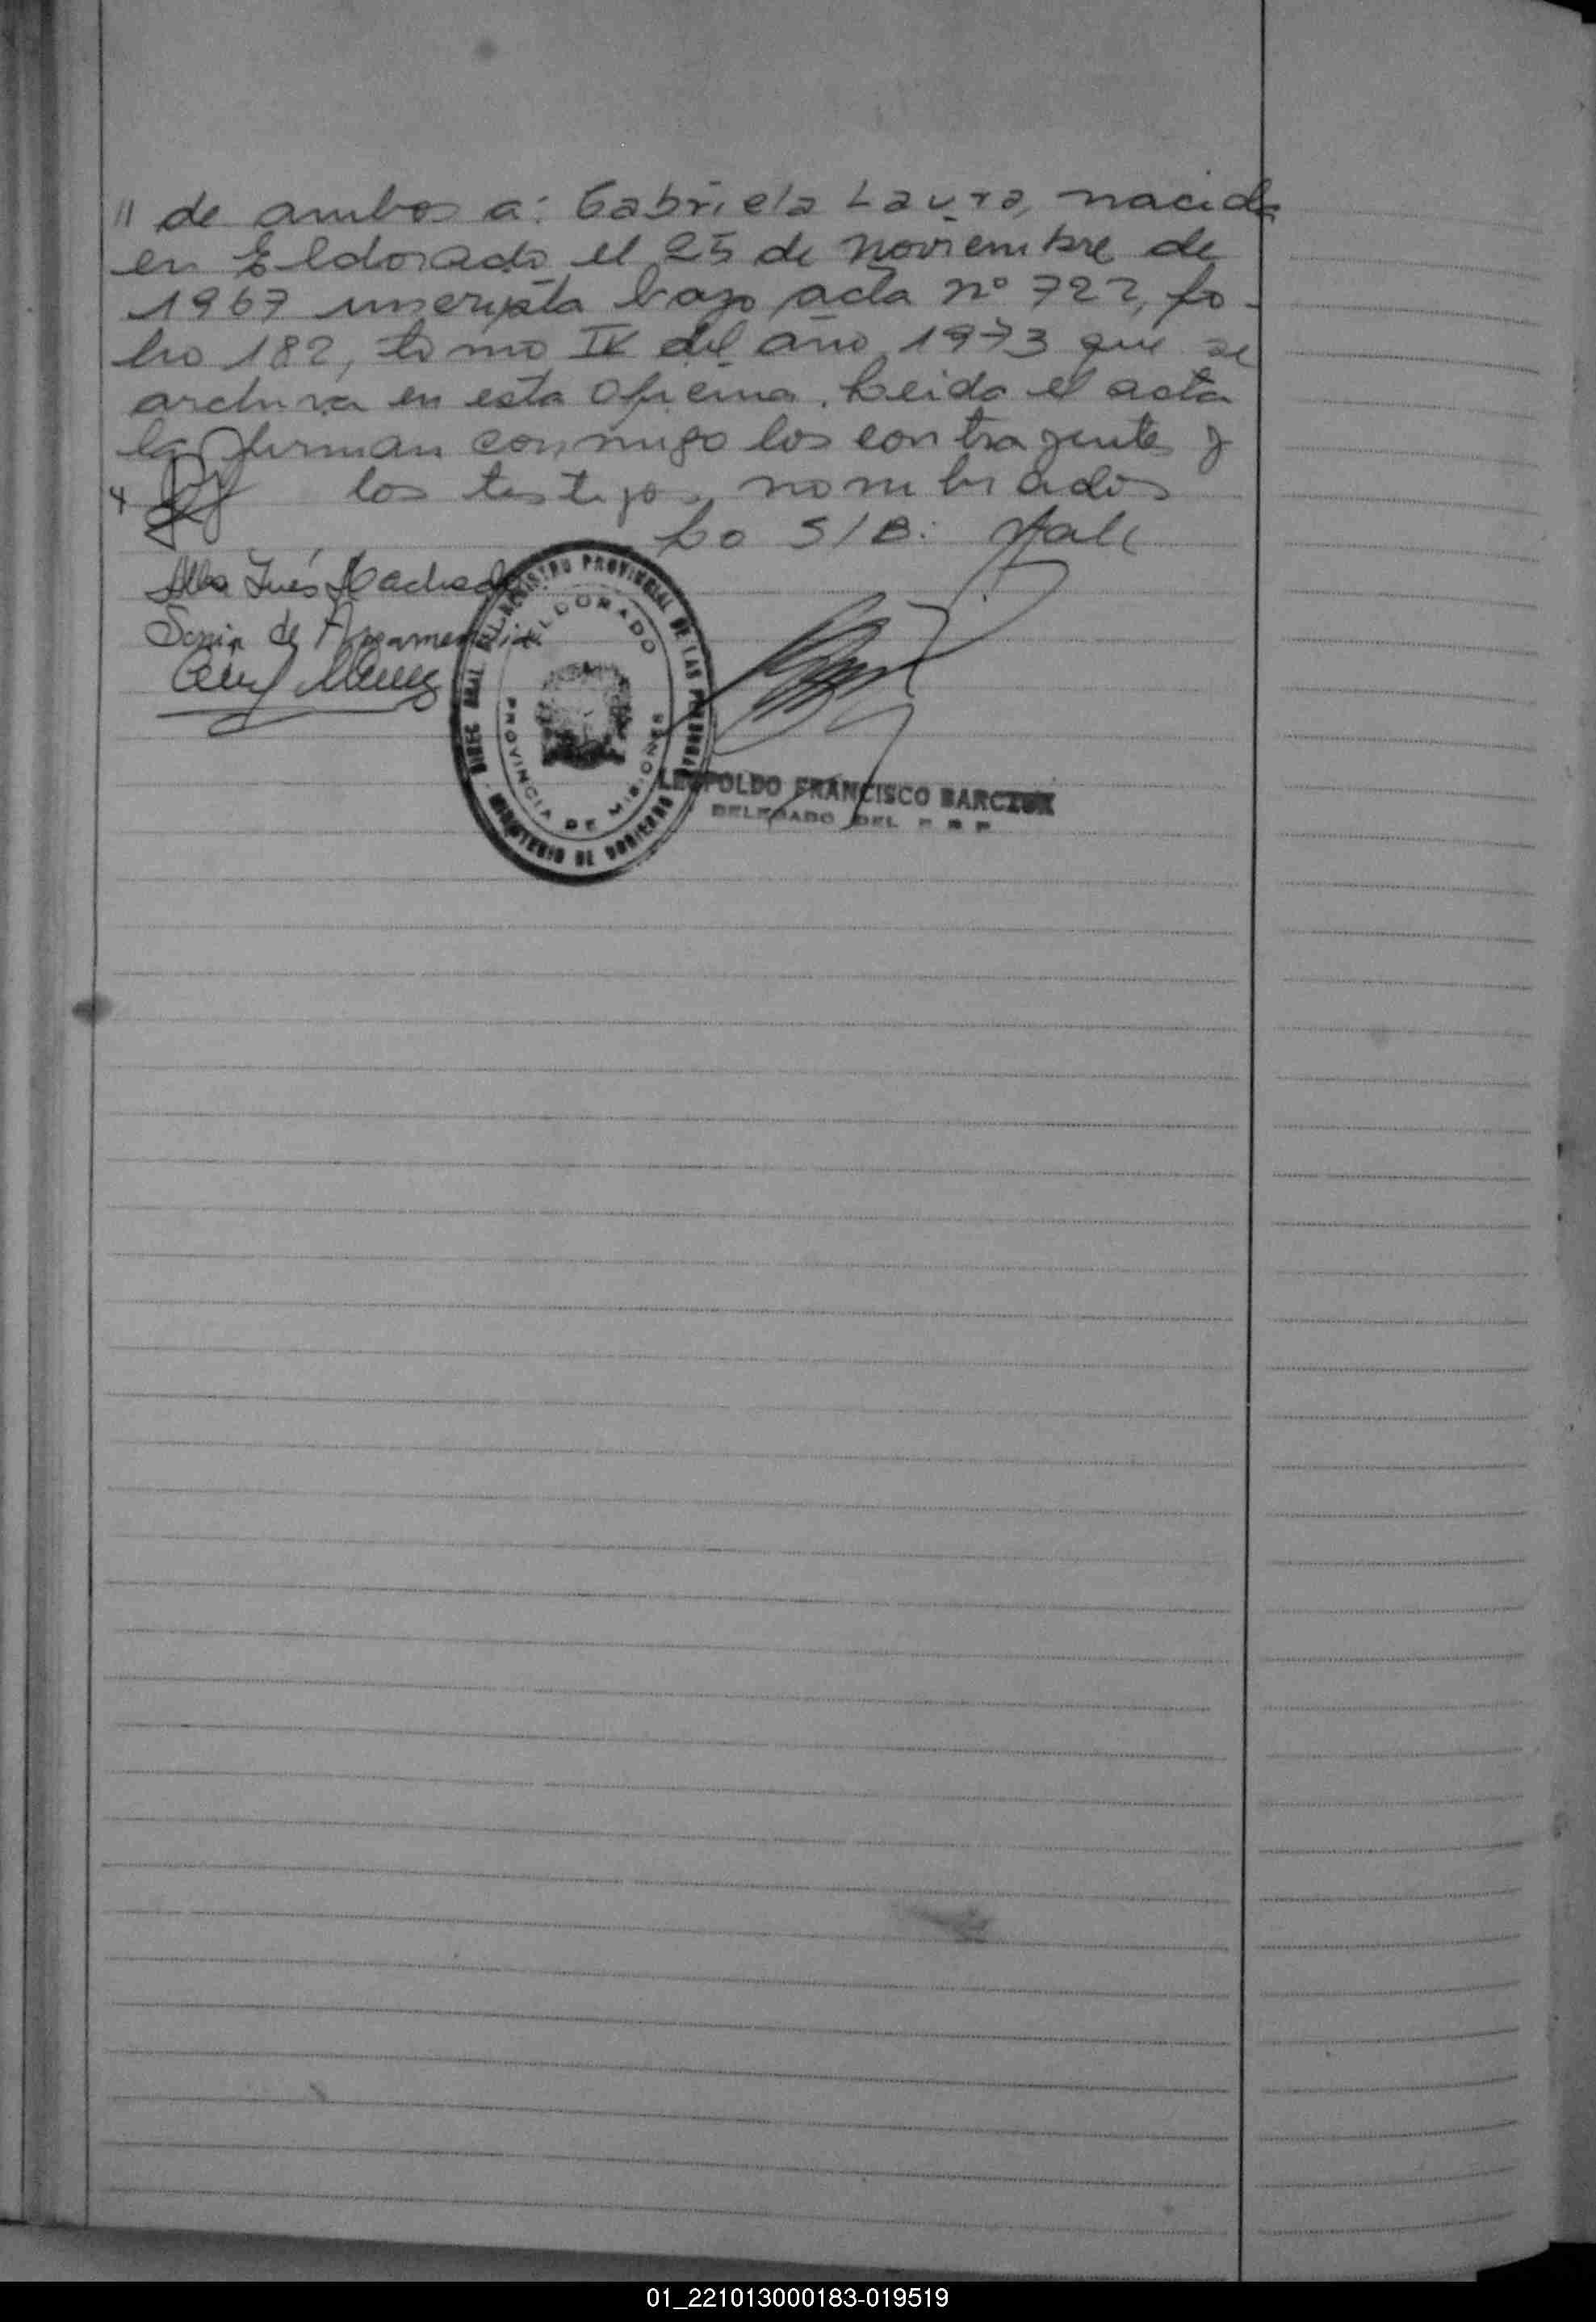 // de ambos a: Gabriela Laura, nacida
en Eldorado el 25 de noviembre de
1967 inscripta bajo acta nº 722, fo-
lio 182, tomo IV del año 1973 que se
archiva en esta oficina. Leida el acta
la firman conmigo los contrayentes y
los testigos nombrados
Lo S/B: Vale
Alba Inés Machado
Sonia de
DIREC. GRAL. DEL REGISTRO PROVINCIAL DE LAS PERSONAS
ELDORADO
PROVINCIA DE MISIONES
MINISTERIO DE GOBIERNO
LEOPOLDO FRANCISCO BARCZUK
DELEGADO DEL R P P
01_221013000183-019519